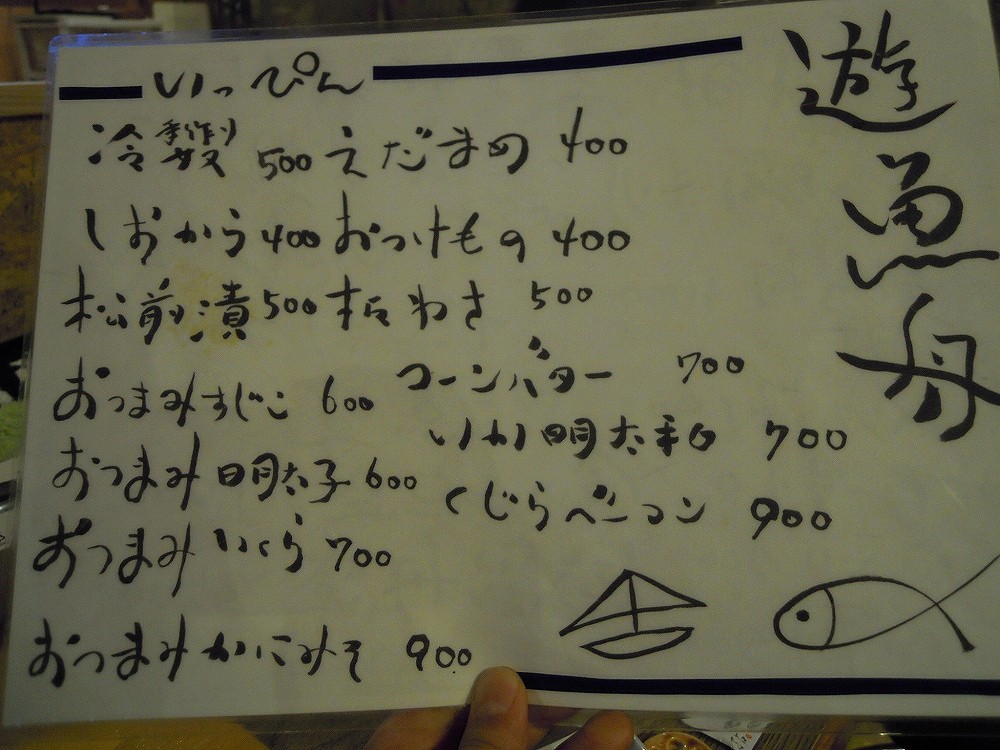 遊魚舟
いっぴん
冷 500 えだまめ 400
しおから 400 おつけもの 400
松前漬 500 板わさ 500
おつまみすじこ 600 コーンバター 700
おつまみ明太子 600 いか明太和 700
おつまみいくら 700 くじらベーコン 900
おつまみかにみそ 900